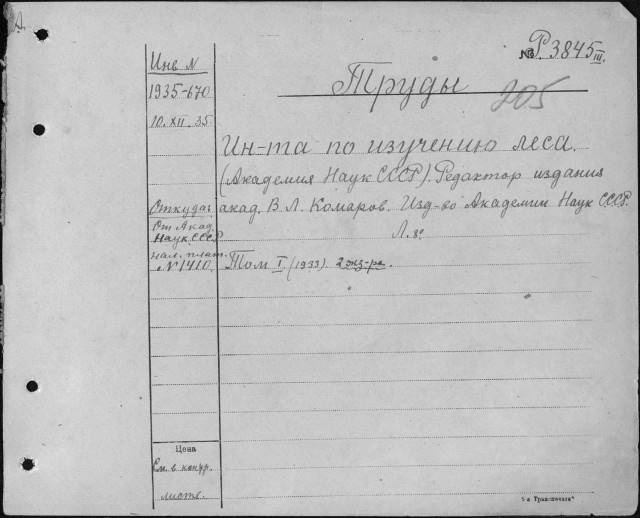 № Р. 3845 III.
Инв N
Труды
205
1935-670
10. XII. 35
Ин-та по изучению леса.
(Академия Наук СССР). Редактор издания
Откуда:
акад. В. Л. Комаров. Изд-во Академии Наук СССР.
От Акад.
Наук СССР
Л. 8°
нал. плат.
№ 1410
Том I. (1933). 2 экз-ра.
Цена
См. в конц.
листе.